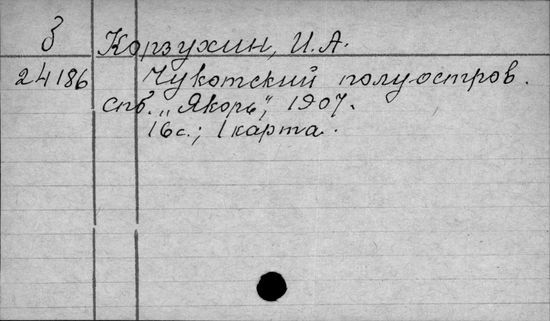 З Корзухин, И.А.
24186 Чукотский полуостров.
спб. „Якорь”, 1907.
16с.; 1 карта.